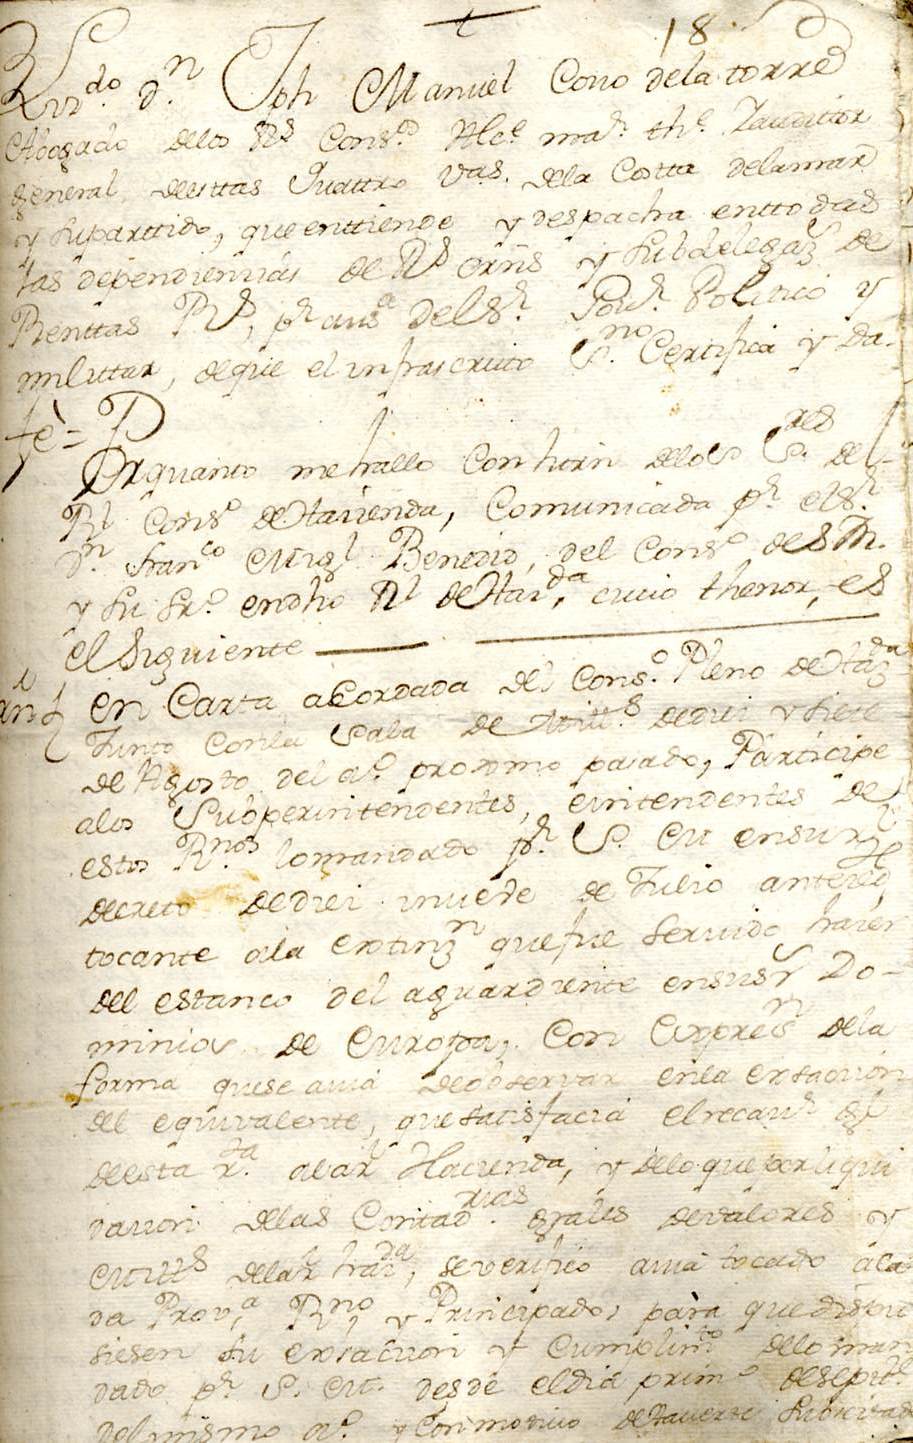 18.
dn. Jph Manuel Cono dela torre
Abogado delos Rs. Conso. Alce. mar. the. Yauditor
General deesttas Quattro Vas. dela Costta delamar
y supartido, queenttiende y despacha enttodas
las dependiencias de Rs orns y subdelegaz. de
Renttas Rs, pr. ausa delsr. Govr. Politico y
milittar, deque el infraescrito Sno. Certifica y da.
fè = P
Orquanto mehallo Con horn delos Sres. del
Rl Conso deHacienda, Comunicada pr. elsr.
Dn. Franco Migl Benedid, del Conso. deSM.
y su Sro. endho Rl deHazda, cuio thenor, es
elsiguiente
En Carta acordada del Conso. Pleno deHazda
Junto Conla Sala de Mills dedies y siete
de Agosto del ao. proximo pasado, Participe
alos Subperintendentes, eintendentes de
estos Rnos. lomandado pr. S. M ensu Rl
decreto dediez inueve de Julio anterior
tocante ala extinzn quefue servido hacer
del estanco del aguardiente ensus Do-
minios de Europa, Con Expresn dela
forma quese avia deobservar enla exsaccion
del equivalente, quesatisfacia elrecaudr Gl
deesta rta. alaRl Hacienda, y deloqueporliqui
dacion delas Contadrias. grales devalores y
Mills delaRl hazda, severifico avia tocado aca
da Prova, Rno, y Principado, para quedispu
siesen su exsaccion y Cumplimto deloman
dado pr. S. M. desde eldia primo deSeptre
delmismo ao. y Conmotivo dehaverse subscitado